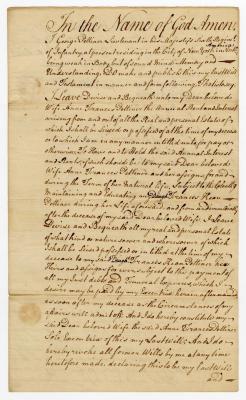 In the Name of God Amen
I George Pettener Lieutenant in his Majesties Regiment
of Infantry at present residing in the City of New York in
being weak in Body but of sound Mind Memory and
Understanding Do make and publish this my last Will
and Testament in manner and form following That is to say
I Leave Devise and Bequeath unto my Dear beloved
Wife Anne Frances Pettener the Annual Rent and Interest
arising from and out of all the Real and personal Estate of
which I shall be Seized or possessed at the time of my decease
or to which I am in any manner intitled unto for payor
otherwise To Have and to Hold the said Annual Interest
and Rents, if such should be to my said Dear beloved
Wife Anne Frances Pettener and her assigns for and
during the Term of her Natural life, Subject to the
Maintaining and Educating my Frances
Pettener during her life as aforesaid and from and immediately
after the decease of my said Dear beloved Wife I Leave
Devise and Bequeath all my real and personal Estate
of what kind or nature soever and wheresoever of which
I shall be Seized possessed or intitled at the time of my
decease to my said Frances Pettener her
Heirs and assigns for ever subject to the payment of
all my Just debts and Funeral Expences, which I
desire may be paid by my Executrix herein after named
as soon after my decease as the Circumstances of my
affairs will admit of And I do hereby constitute my
said Dear beloved Wife the said Anne Frances Pettener
Sole Executrix of this my Last Will And I do
hereby revoke all former Wills by me at any time
heretofore made declaring this to be my last Will
and